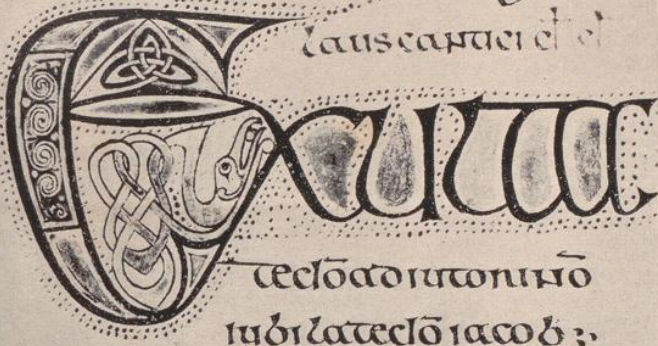 laus cantici
Exulta
te dō adiutori nrō
iubilate dō iacob ;,